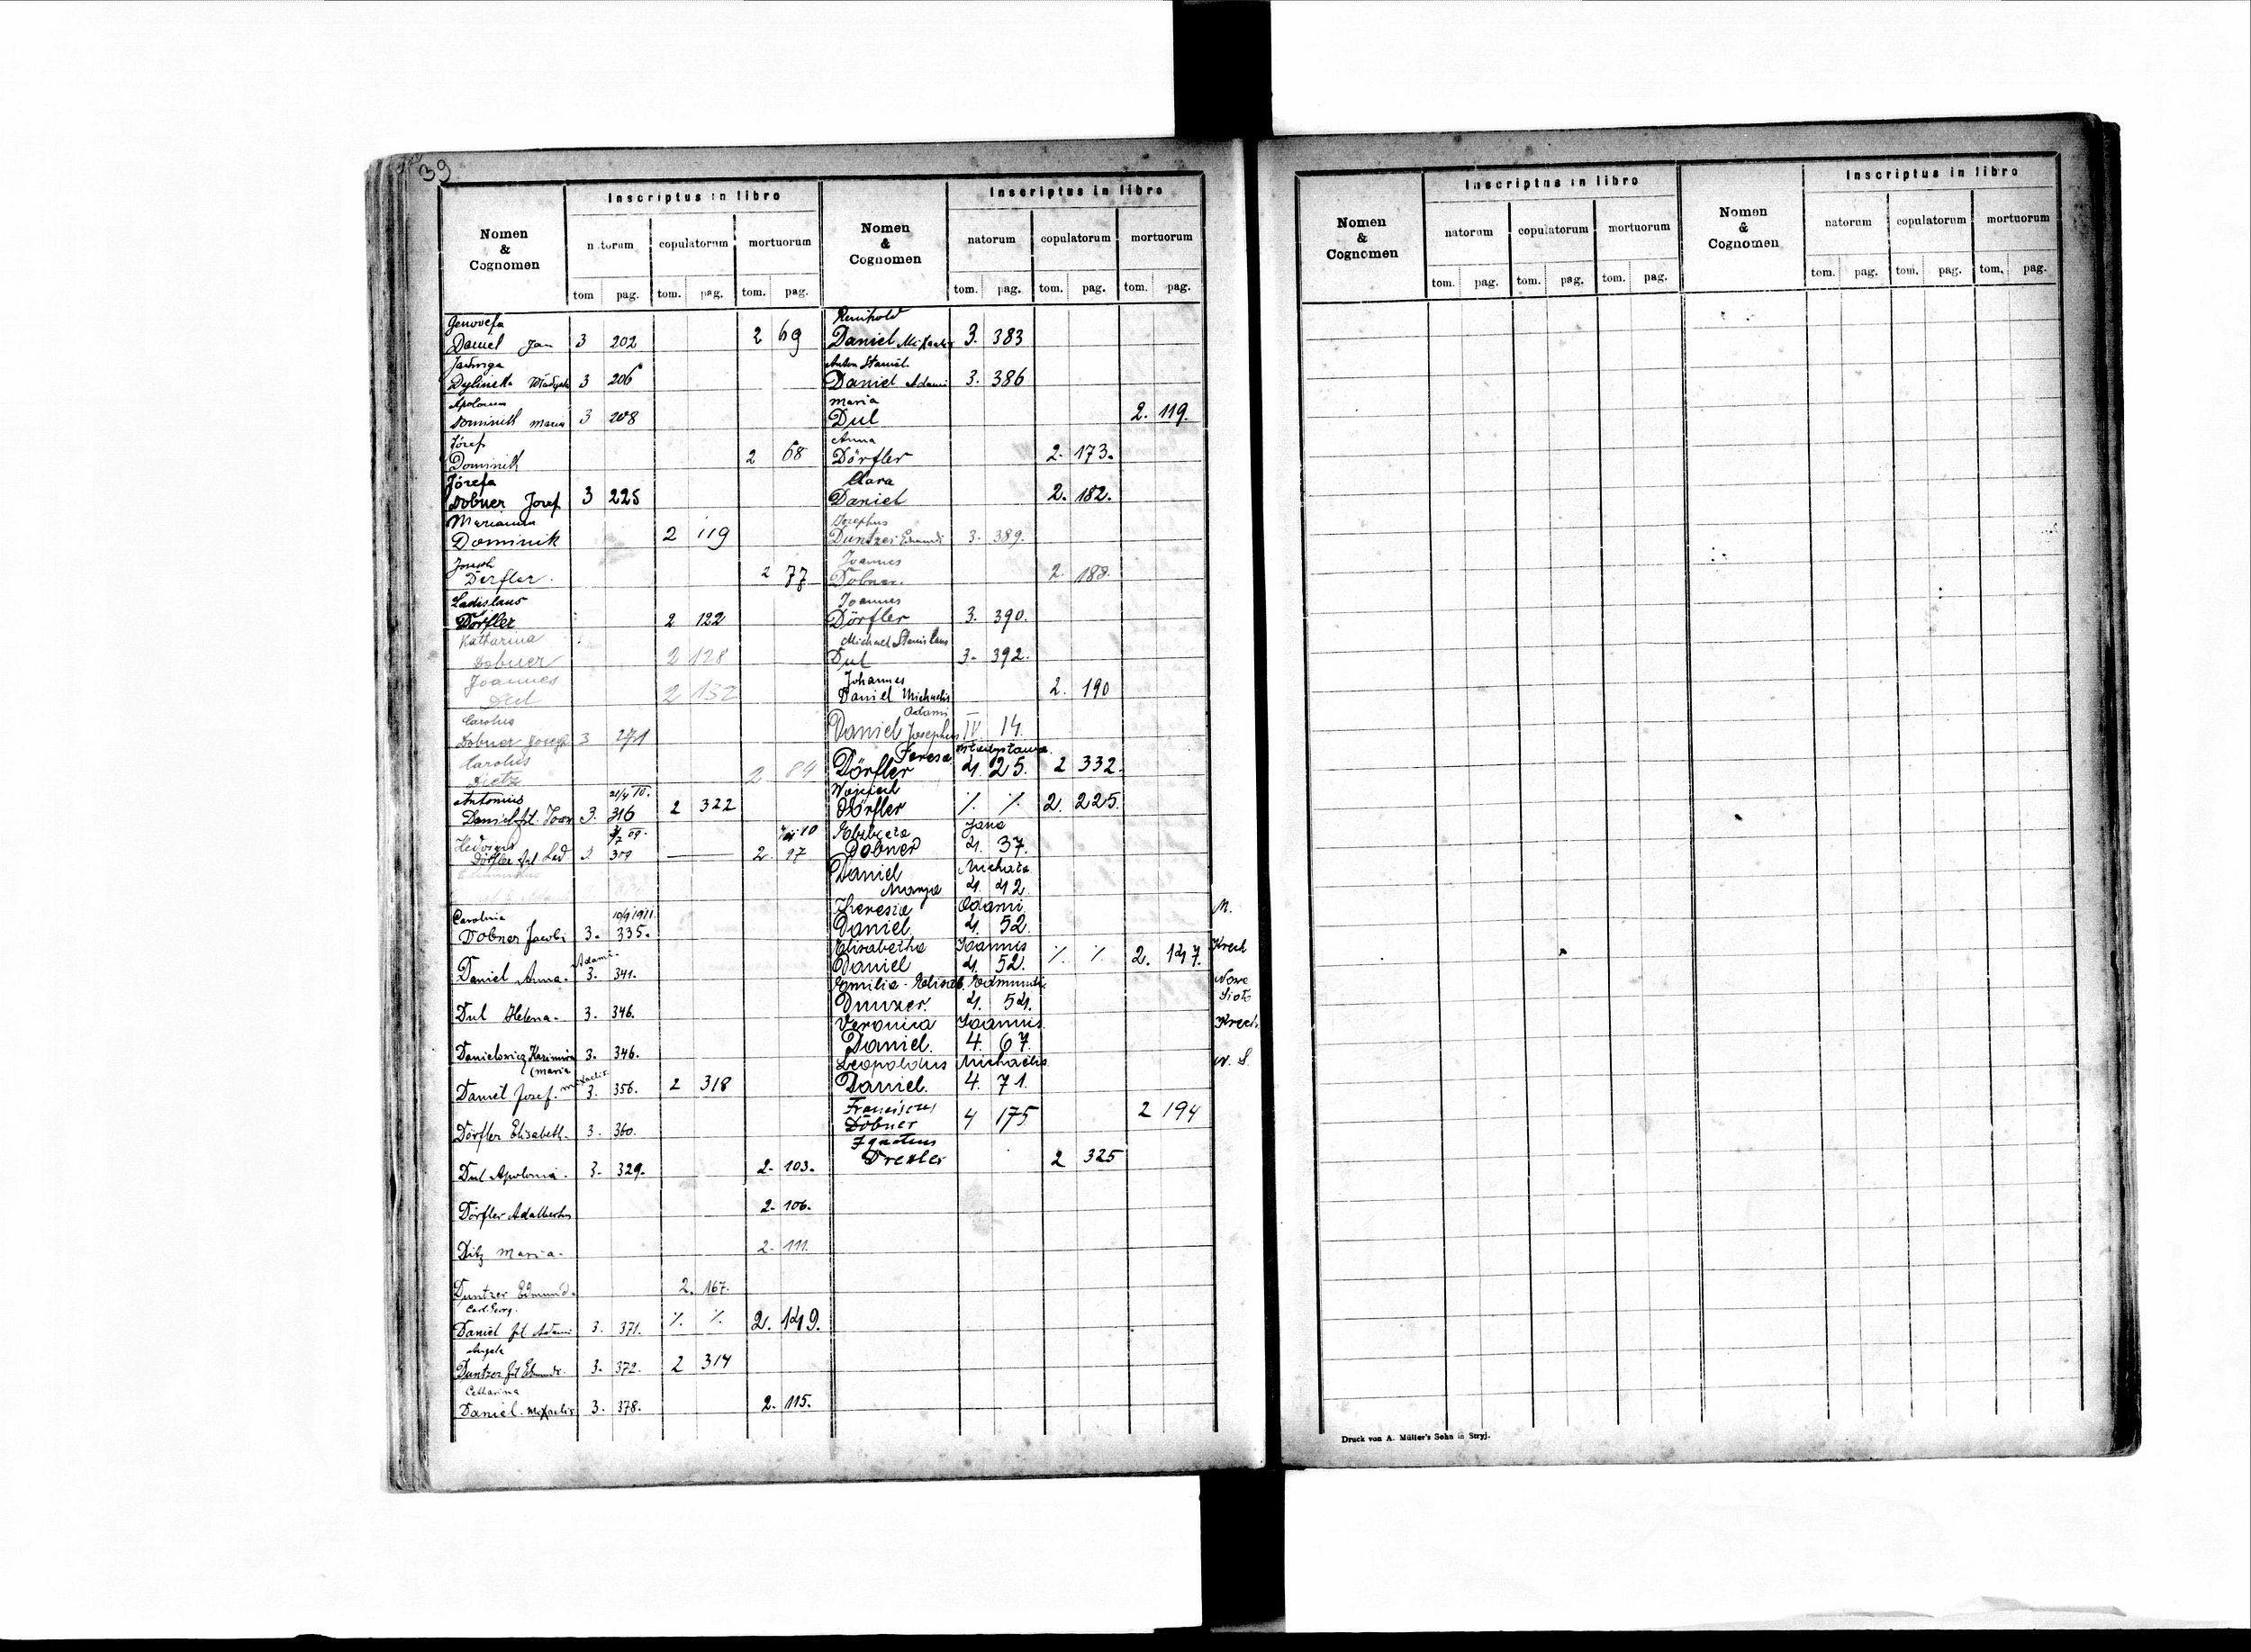 39
Nomen & Cognomen
Inscriptus in libro
natorum copulatorum mortuorum
tom pag. tom. pag. tom. pag.
Genovefa
Daniel Jan 3 202 2 69
Jadwiga
Dylinska 3 206
Dominik Maria 3 208
Józef
Dominik 2 68
Józefa
Dobner Josef 3 225
Marianna
Dominik 2 119
Joseph
Derfler. 2 77
Ladislaus
Dörfler 2 122
Katharina
Dobner 2 128
Joannes
Dul 2 132
Carolus
Dobner Joseph 3 271
Karolus
Dietz 2 84
Antonius 21/4 10.
Daniel fil. Joan 3. 316 2 322
Hedvigis
Dörfler fil Lad 3. 319 — 2. 97
Carolina 10/9 1911.
Dobner Jacobi 3. 335.
Adami.
Daniel Anna. 3. 341.
Dul Helena. 3. 346.
Danielowicz Kazimira 3. 346.
(Maria
Daniel Josef. Michaelis 3. 356. 2 318
Dörfler Elisabeth. 3. 360.
Dul Apolonia. 3. 329. 2. 103.
Dörfler Adalbertus 2. 106.
Ditz Maria. 2. 111.
Duntzer Edmund. 2. 167.
Carl. Georg.
Daniel fil Adami 3. 371. % % 2. 149.
Angela
Duntzer fil Edmundi. 3. 372. 2 314
Catharina
Daniel. Michaelis 3. 378. 2. 115.
Nomen & Cognomen
Inscriptus in libro
natorum copulatorum mortuorum
tom. pag. tom. pag. tom. pag.
Reinhold
Daniel Michaelis 3. 383
Anton Stanisl.
Daniel Adami 3. 386
Maria
Dul 2. 119.
Anna
Dörfler 2. 173.
Clara
Daniel 2. 182.
Josephus
Duntzer Edmundi 3. 389.
Joannes
Dobner. 2. 188.
Joannes
Dörfler 3. 390.
Michael Stanislaus
Dul 3. 392.
Johannes
Daniel Michaelis 2. 190
Adami
Daniel Josephus IV. 14.
Teresa Władysława.
Dörfler 4. 25. 2 332.
Wojciech
Dörfler % % 2. 225.
Elżbieta Jana
Dobner 4. 37.
Daniel Michała
Marya 4. 42.
Theresia Adami. M.
Daniel. 4. 52.
Elisabetha Joannis Krech
Daniel 4. 52. % % 2. 147.
Emilia - Elisab. Edmundi. Nowe
Dunzer. 4. 54. Sioło
Veronica Joannis. Krech.
Daniel. 4. 67.
Leopoldus Michaelis. N. S.
Daniel. 4. 71.
Franciscus
Dobner 4 175 2 194
Ignatius
Drexler 2 325
Nomen & Cognomen
Inscriptus in libro
natorum copulatorum mortuorum
tom. pag. tom. pag. tom. pag.
Nomen & Cognomen
Inscriptus in libro
natorum copulatorum mortuorum
tom. pag. tom. pag. tom. pag.
Druck von A. Müller's Sohn in Stryj.